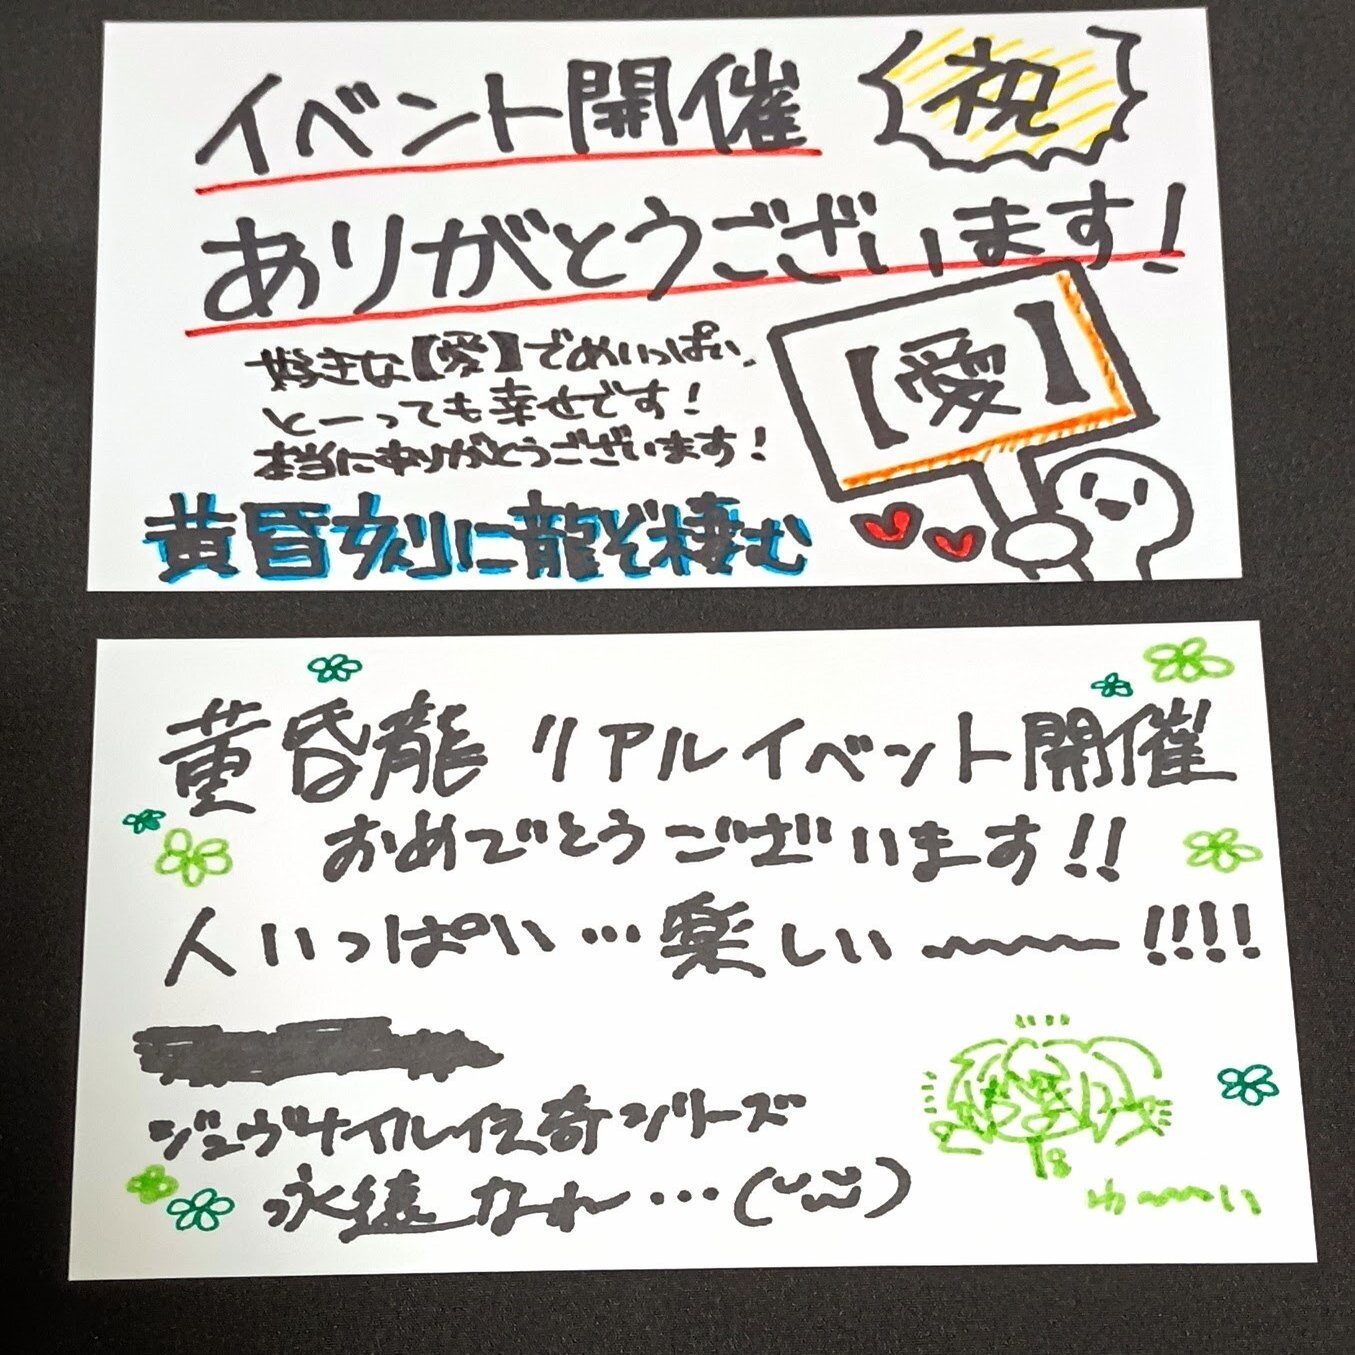 イベント開催
祝
ありがとうございます!
好きな【愛】でめいっぱい、
とーっても幸せです!
本当にありがとうございます!
【愛】
黄昏刻に龍ぞ棲む
黄昏龍 リアルイベント開催
おめでとうございます!!
人いっぱい…楽しい〜〜!!!!
ジュヴナイル伝奇シリーズ
永遠なれ…
わ〜〜い